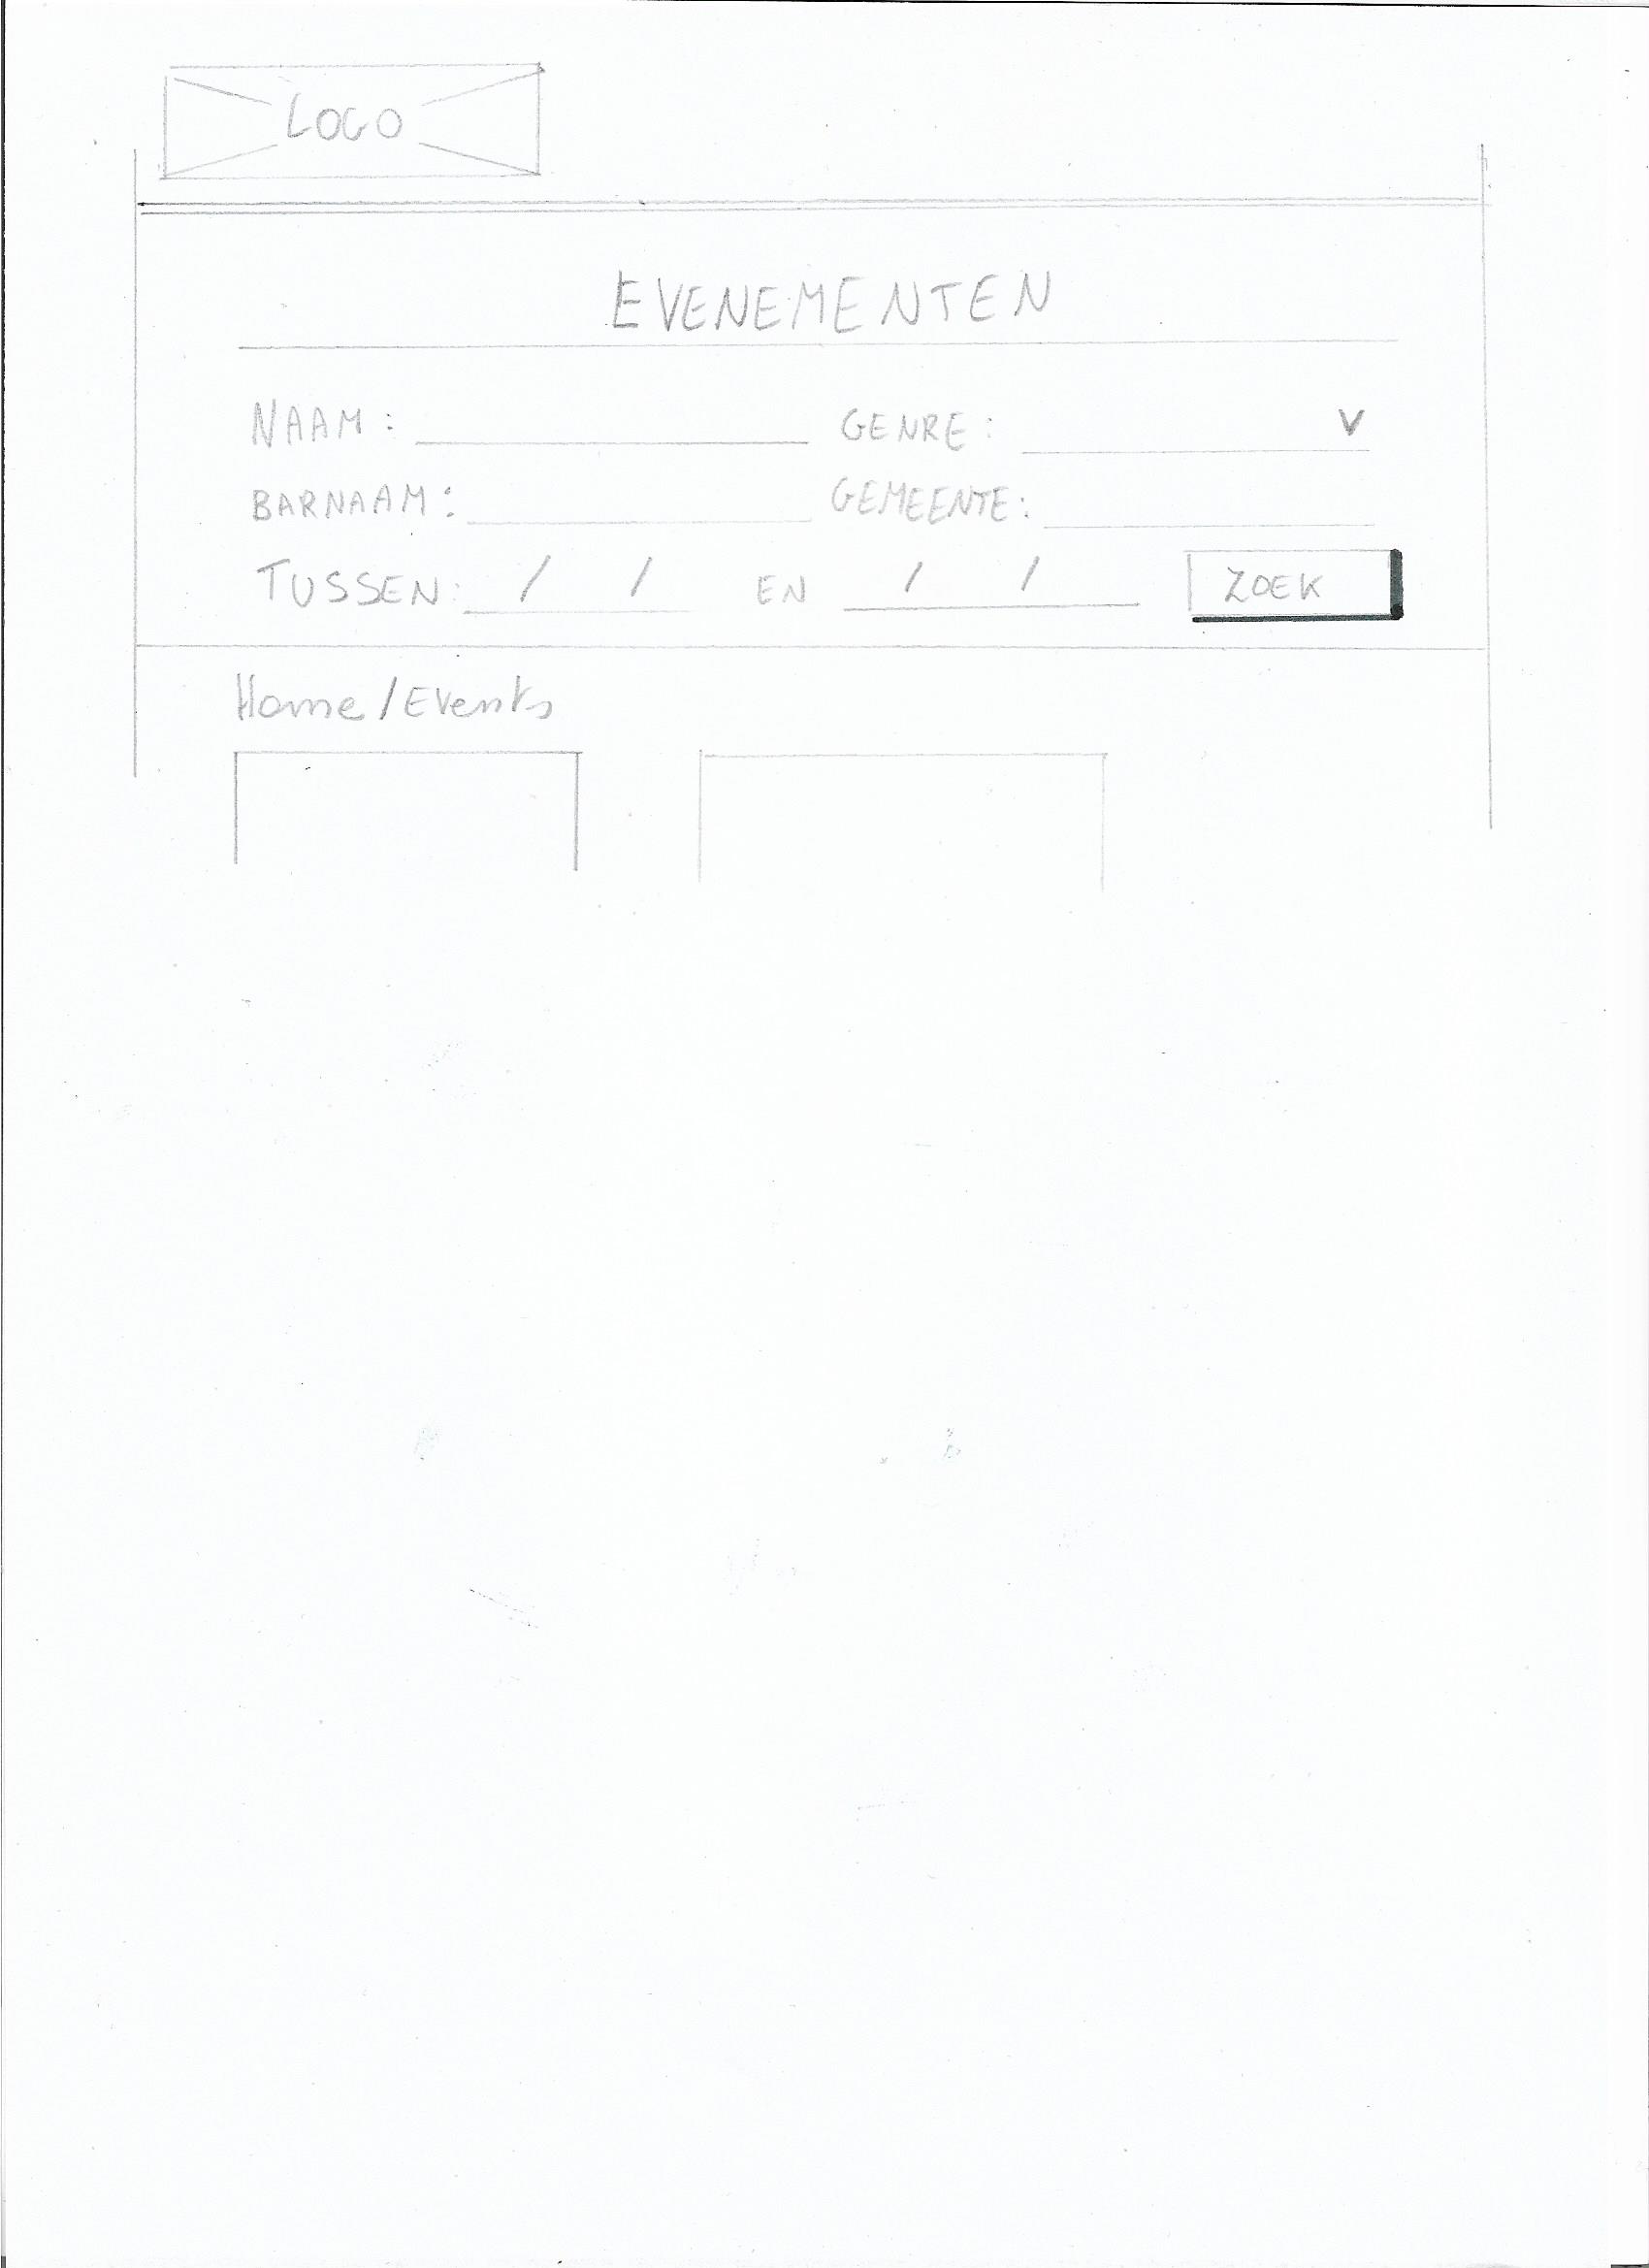 LOGO
EVENEMENTEN
NAAM: GENRE: V
BARNAAM: GEMEENTE:
TUSSEN: / / EN / / ZOEK
Home/Events